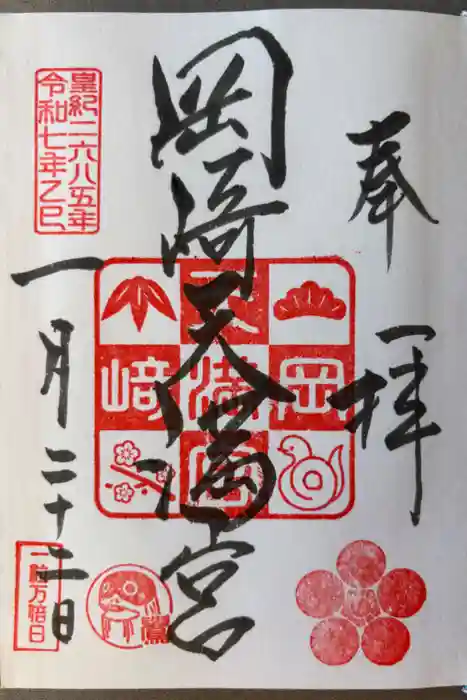 奉拝
岡崎天満宮
皇紀二六八五年
令和七年乙巳
一月二十二日
岡
崎
天
満
宮
一粒万倍日
鷽